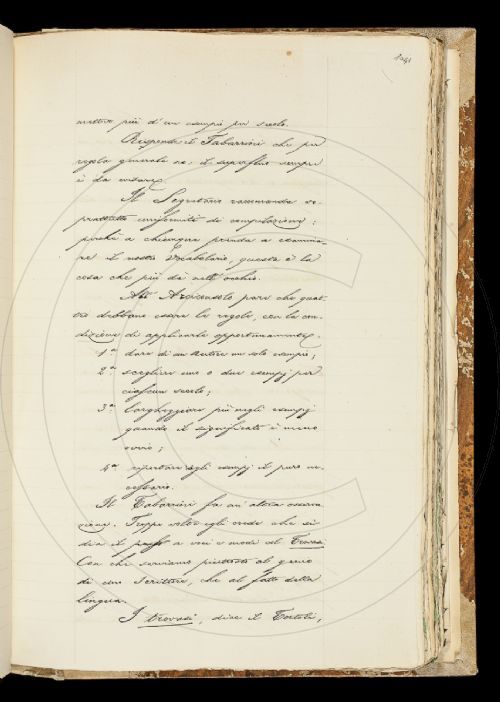 mettere più d'un esempio per secolo.
Risponde il Tabarrini che per
regola generale no: il superfluo sempre
è da evitare.
Il Segretario raccomanda so-
prattutto uniformità di compilazione;
perchè a chiunque prenda a esamina-
re il nostro Vocabolario, questa è la
cosa che più dà nell'occhio.
Arcicondolo pare che quat-
tro debbano essere le regole, con la con-
dizione di applicarle opportunamente.
1ª dare di un Autore un solo esempio;
2ª scegliere uno o due esempj per
ciascun secolo;
3ª largheggiare più negli esempj
quando il significato è meno
ovvio;
4ª riportare dagli esempj il puro ne-
cessario.
Il Tabarrini fa un'altra osserva-
zione. Troppe volte egli vede che si
dia il passo a voci o modi col Trovasi
Con che serviamo piuttosto al genio
di uno Scrittore, che al fatto della
lingua.
I trovasi, dice il Tortoli,